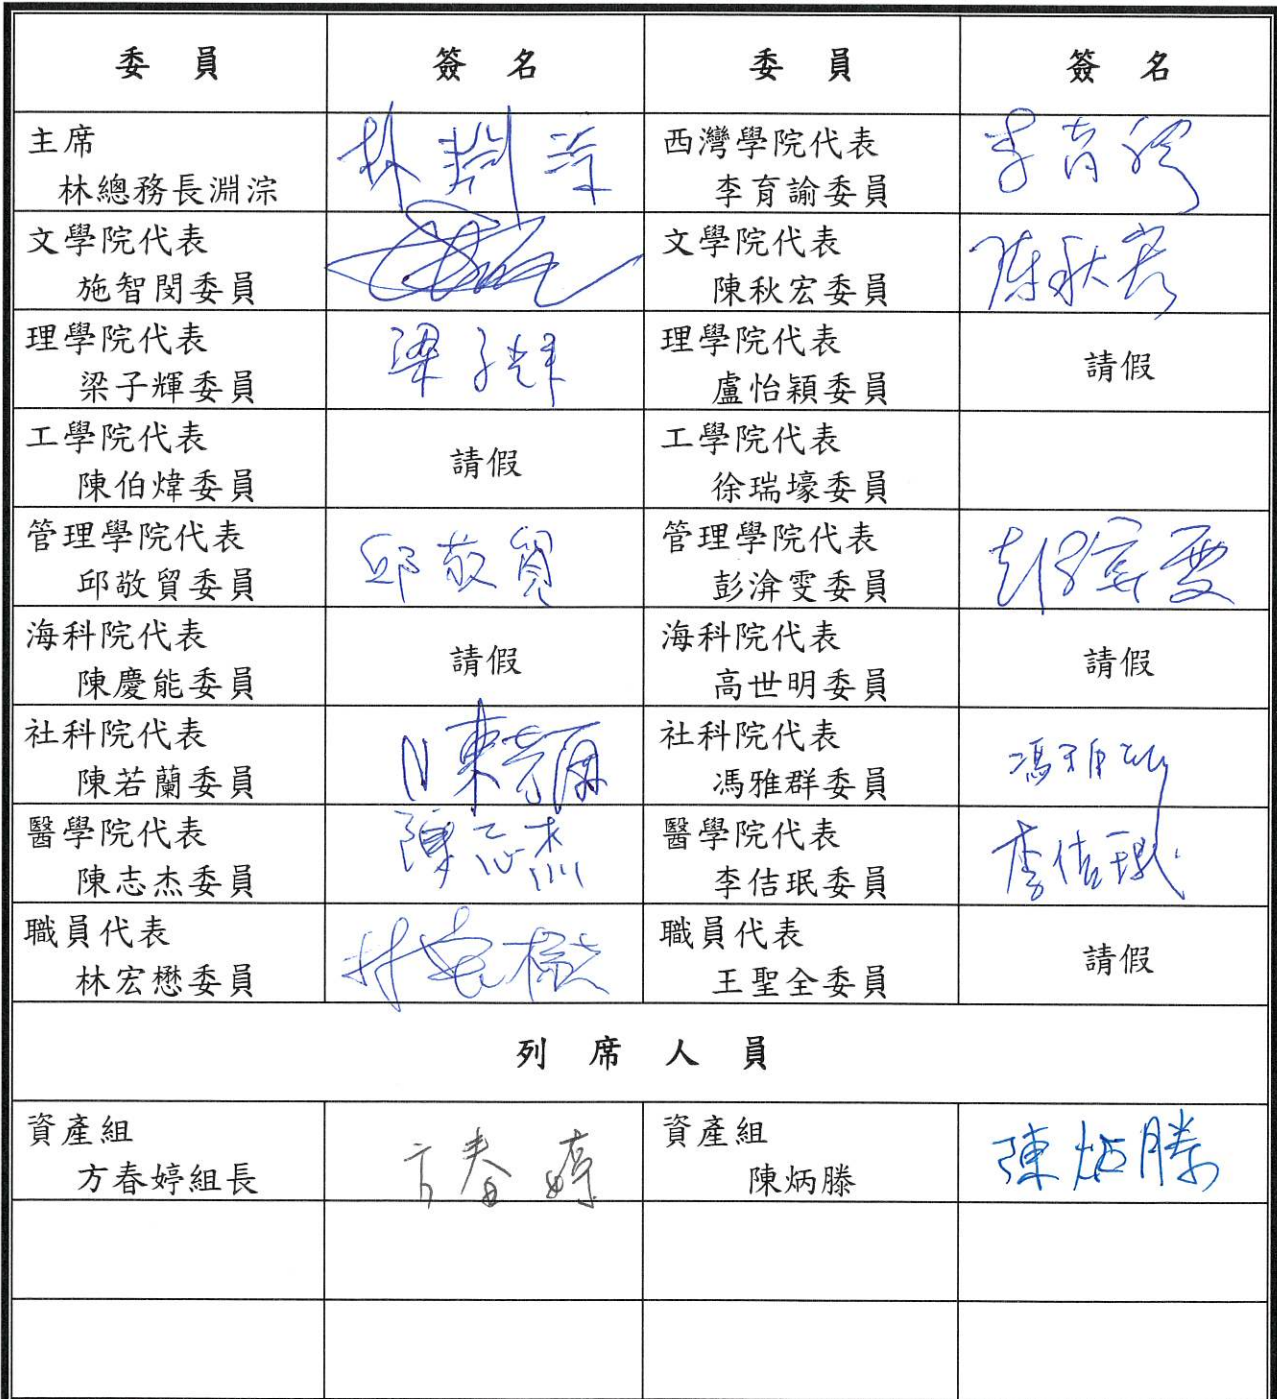 委員 簽名 委員 簽名
主席
林總務長淵淙
林淵淙
西灣學院代表
李育諭委員
李育諭
文學院代表
施智閔委員
文學院代表
陳秋宏委員
陳秋宏
理學院代表
梁子輝委員
梁子輝
理學院代表
盧怡穎委員
請假
工學院代表
陳伯煒委員
請假
工學院代表
徐瑞壕委員
管理學院代表
邱敬貿委員
邱敬貿
管理學院代表
彭渰雯委員
彭渰雯
海科院代表
陳慶能委員
請假
海科院代表
高世明委員
請假
社科院代表
陳若蘭委員
陳若蘭
社科院代表
馮雅群委員
馮雅群
醫學院代表
陳志杰委員
陳志杰
醫學院代表
李佶珉委員
李佶珉
職員代表
林宏懋委員
林宏懋
職員代表
王聖全委員
請假
列席人員
資產組
方春婷組長
方春婷
資產組
陳炳滕
陳炳滕